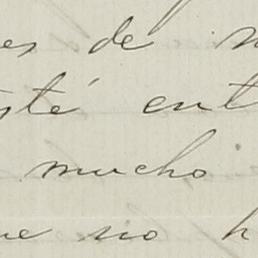 es de
esté ent
mucho
ue no h